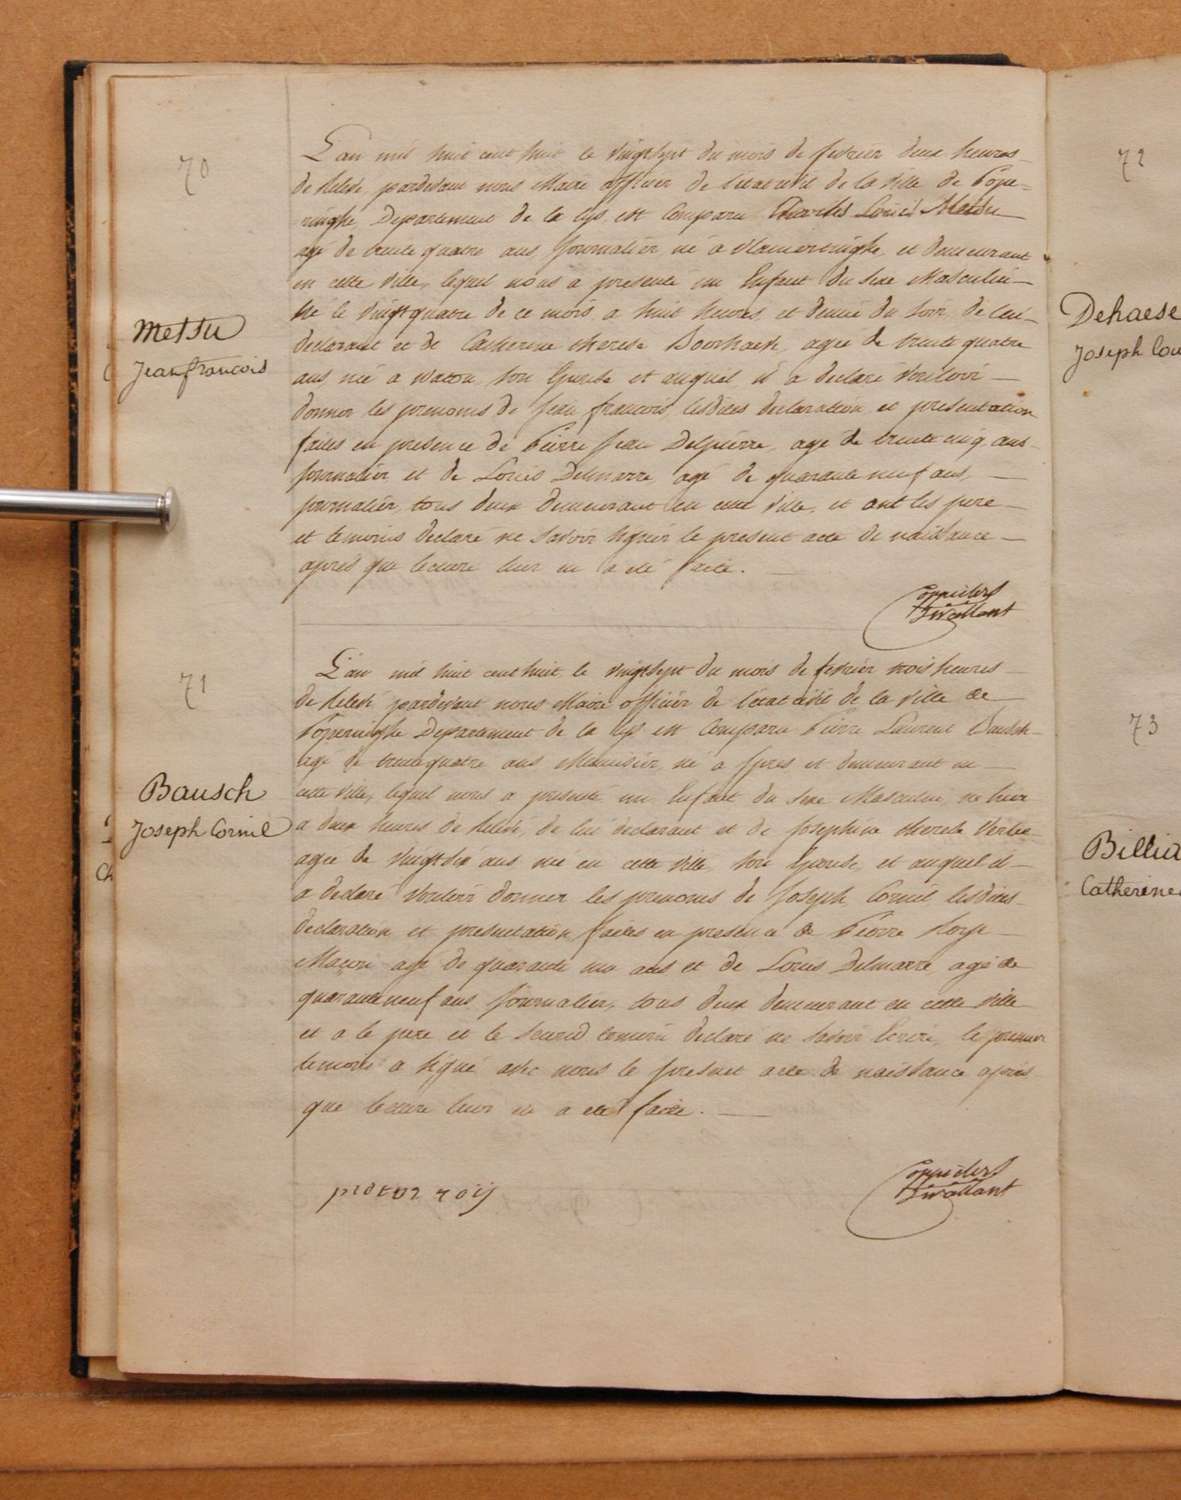 70
Metsu
Jean francois
L'an mil huit cent huit le vingtsept du mois de fevrier deux heures
de Relevé, pardevant nous Maire officier de l'etat civil de la ville de Pope-
ringhe, Departement de la Lys est Comparu Charles Louis Metsu
agé de trente quatre ans Journalier, né a vlamertinghe, et demeurant
en cette ville, lequel nous a presenté un Enfant du sexe Masculin
né le vingtquatre de ce mois a huit heures et demie du soir, de lui
declarant et de Catherine therese agée de trente quatre
ans née a watou son Epouse et auquel il a declaré vouloir
donner les prenoms de Jean francois, lesdites declaration et presentation
faites en presence de Pierre Jean Delpierre, agé de trente cinq ans
journalier et de Louis Delmarre agé de quarante neuf ans,
journalier, tous deux demeurant en cette ville, et ont les pere
et temoins declaré ne savoir signer le present acte de naissance
aprés que lecture leur en a eté faite.
71
Bausch
Joseph Cornil
L'an mil huit cent huit le vingtsept du mois de fevrier trois heures
de Relevé pardevant nous Maire officier de l'état civil de la ville de
Poperinghe Departement de la Lys est Comparu Pierre Laurent Bausch
agé de trentequatre ans Menuisier, né a Ypres et demeurant en
cette ville, lequel nous a presenté un Enfant du sexe Masculin, né hier
a deux heures de Relevé, de lui declarant et de Josephine therese
agée de vingtsix ans née en cette ville son Epouse, et auquel il
a declaré vouloir donner les prenoms de Joseph Cornil, lesdites
declaration et presentation faites en presence de Pierre
Maçon agé de quarante un ans et de Louis Delmarre, agé de
quaranteneuf ans Journalier, tous deux demeurant en cette ville
et a le pere et le second temoin declaré ne savoir Ecrire, le premier
temoin a signé avec nous le present acte de naissance aprés
que lecture leur en a eté faite.
72
Dehaese
Joseph Lou
73
Billia
Catherine